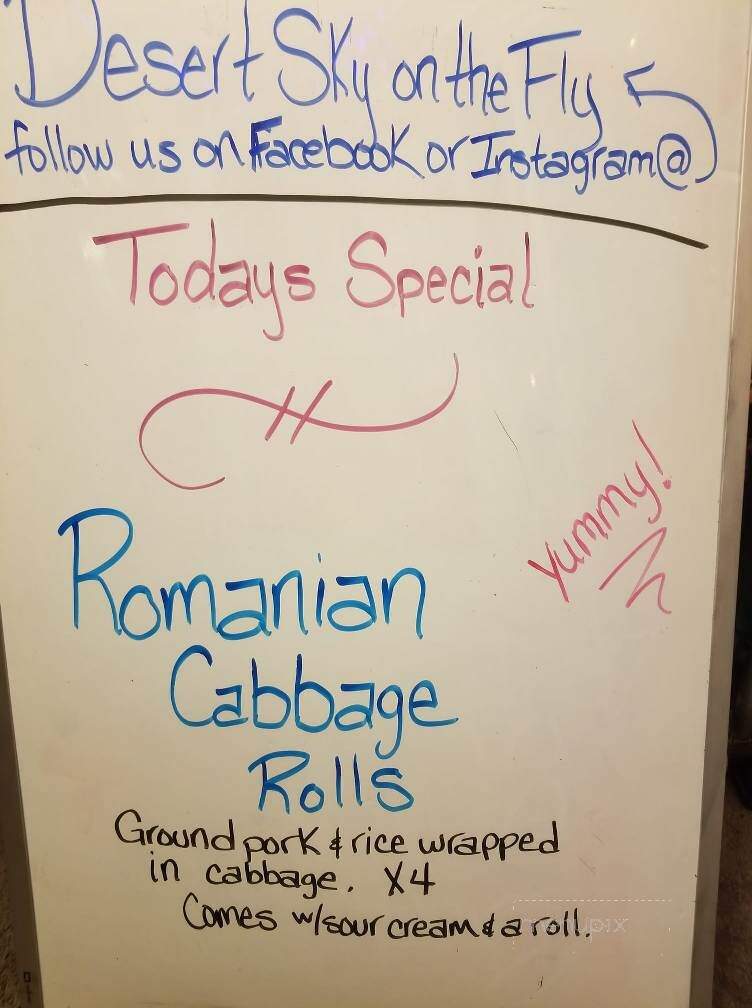 Desert Sky on the Fly
follow us on Facebook or Instagram@
Todays Special
Yummy!
Romanian
Cabbage
Rolls
Ground pork & rice wrapped
in cabbage. X4
Comes w/sour cream & a roll.
menupix